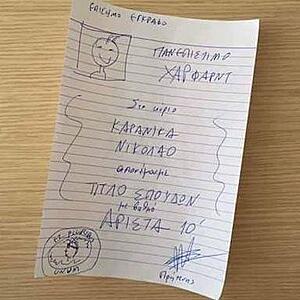 ΕΠΙΣΗΜΟ ΕΓΓΡΑΦΟ
ΠΑΝΕΠΙΣΤΙΜΟ
ΧΑΡΦΑΡΝΤ
Στο κύριο
ΚΑΡΑΝΙΚΑ
ΝΙΚΟΛΑΟ
απονέμουμε
ΤΙΤΛΟ ΣΠΟΥΔΩΝ
με βαθμό
ΑΡΙΣΤΑ 10
UNUM
Πρύτανης